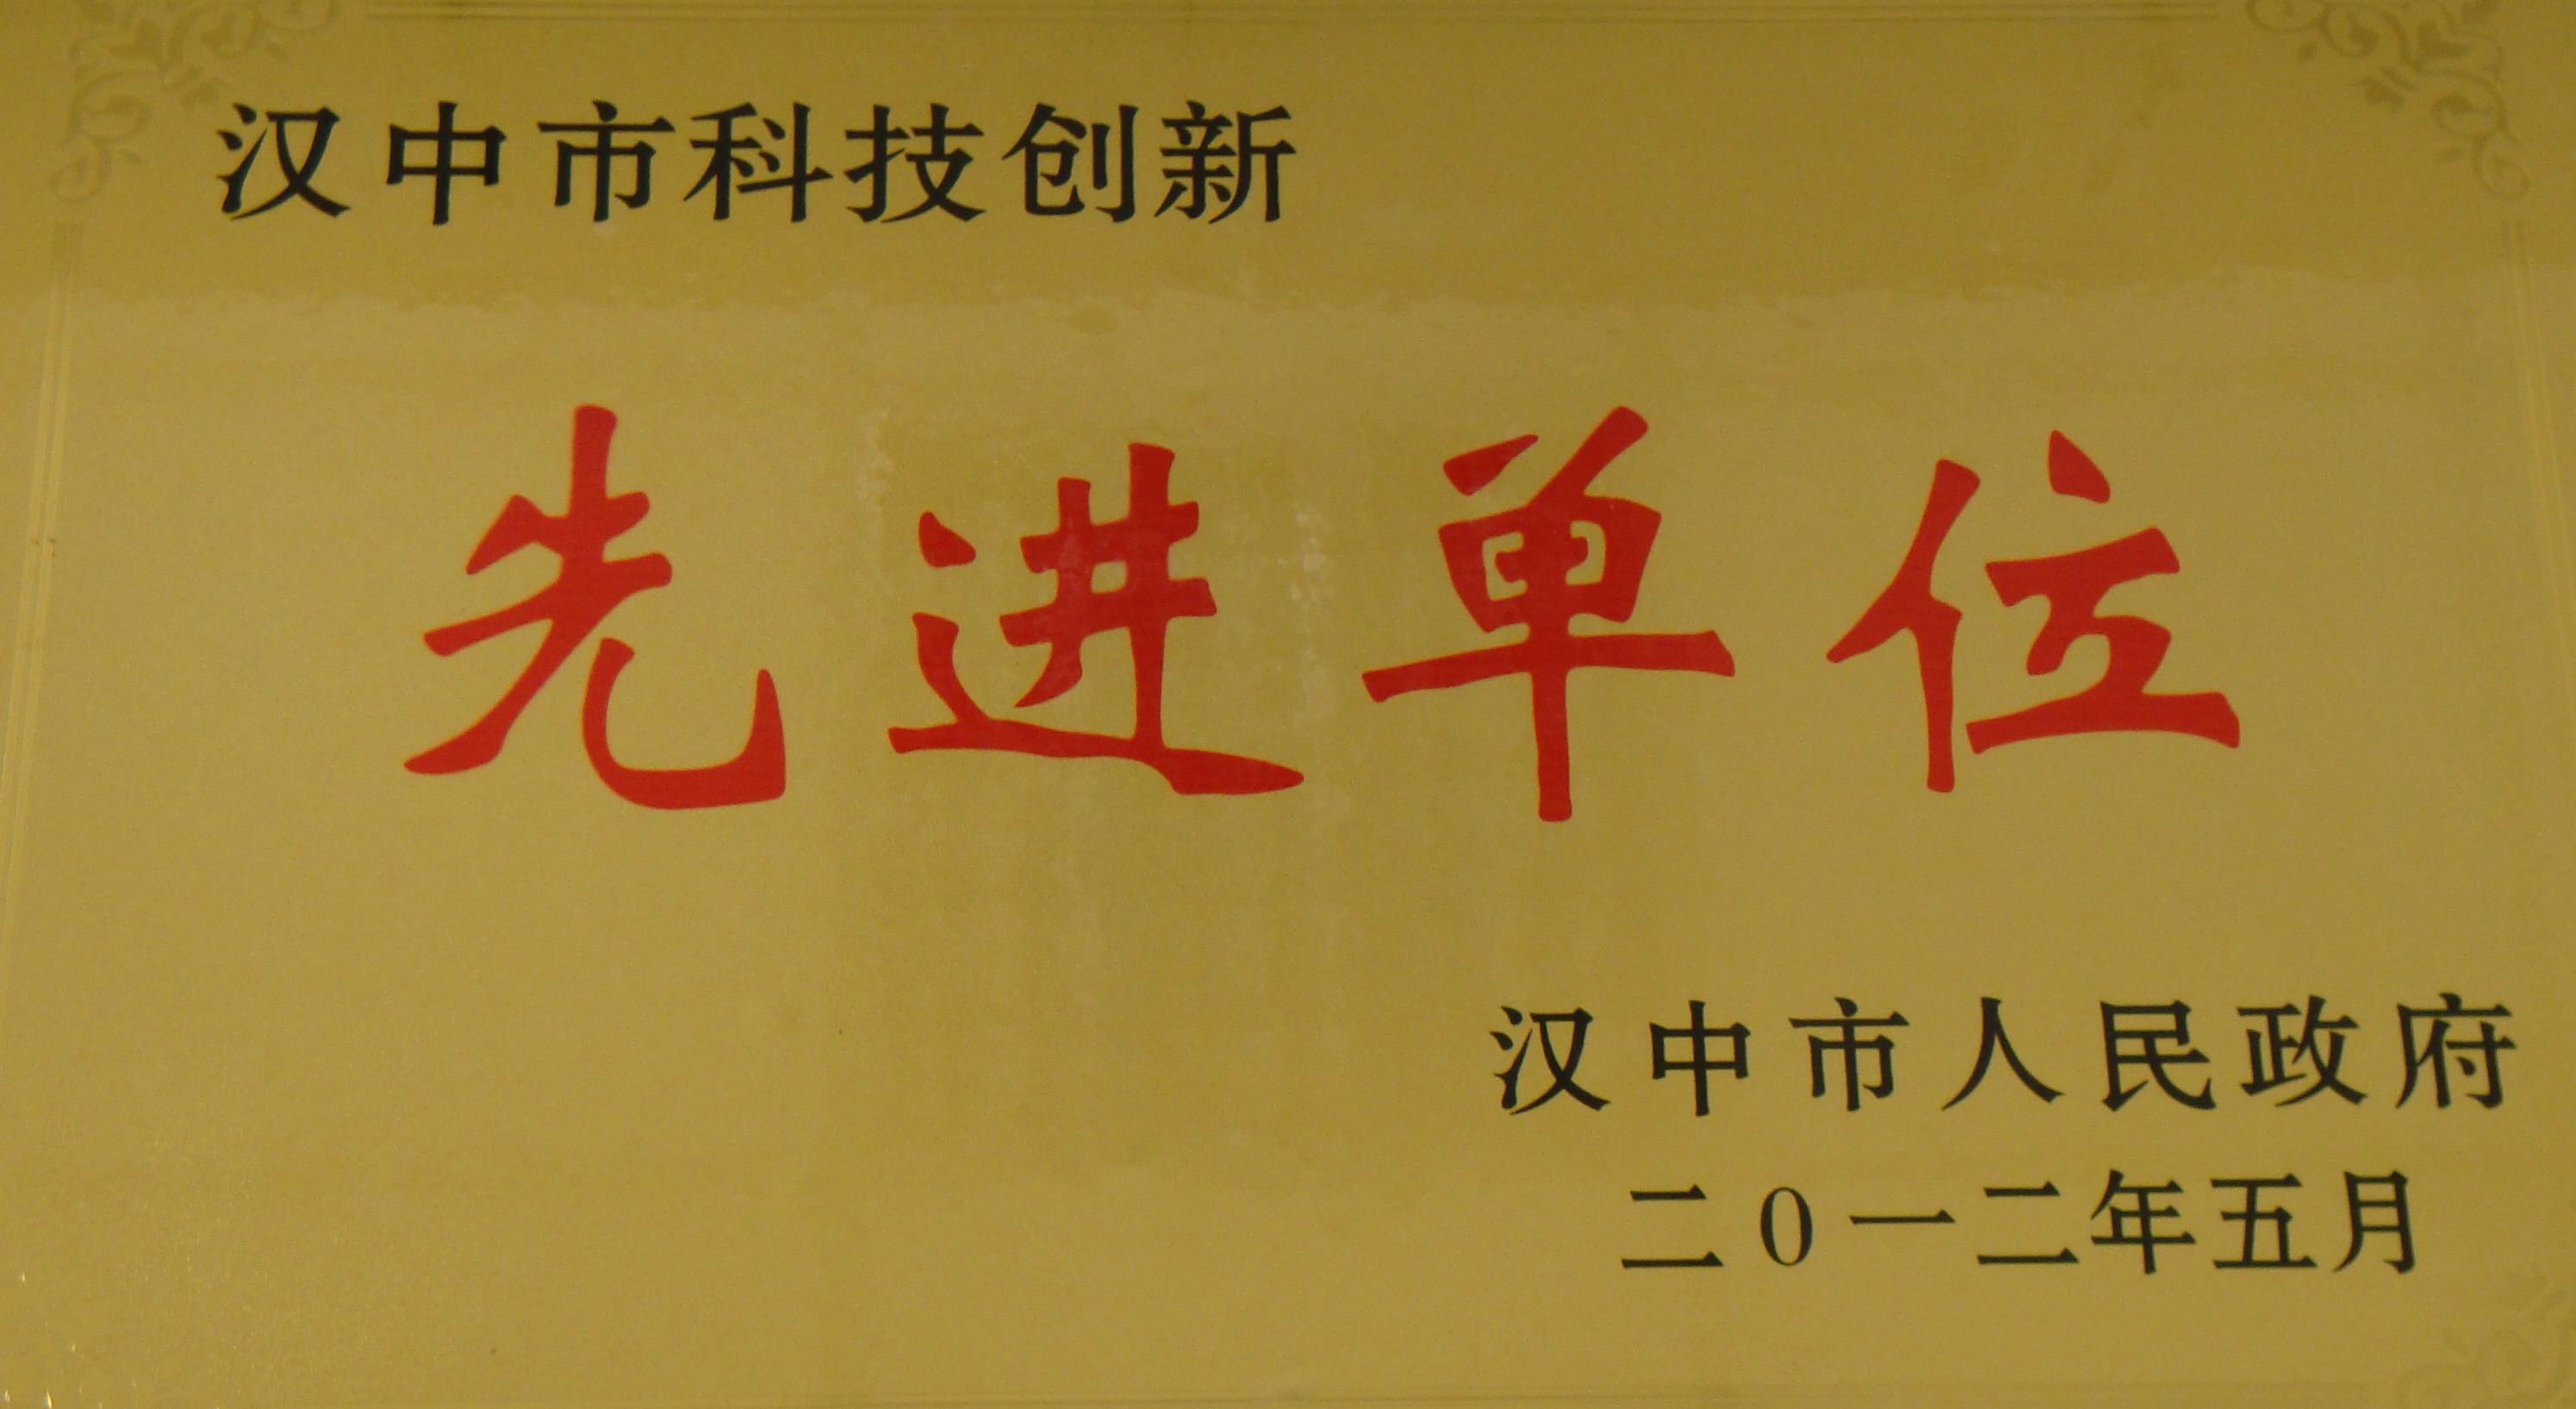 汉中市科技创新
先进单位
汉中市人民政府
二0一二年五月